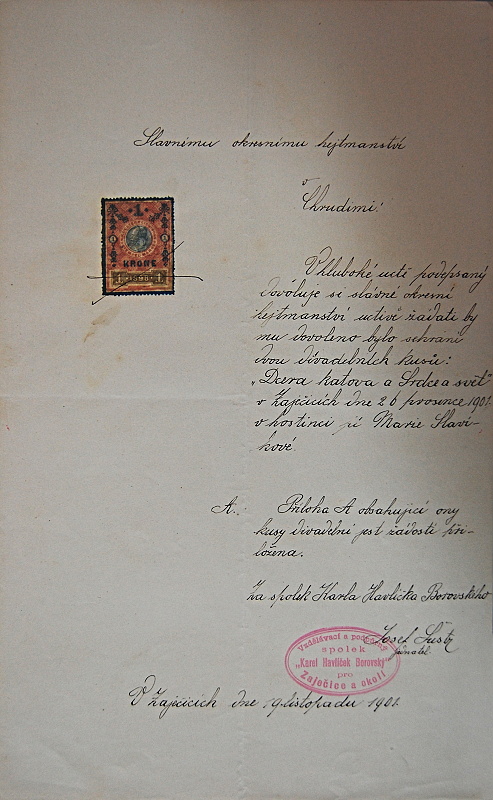 Slavnému okresnímu hejtmanství
v
Chrudimi!
1
KRONE
1 1898 1
V hluboké úctě podepsaný
dovoluje si slavné okresní
hejtmanství uctivě žádati by
mu dovoleno bylo sehrání
dvou divadelních kusů:
„Dcera katova a Srdce a svět"
v Zaječicích dne 26 prosince 1901
v hostinci pí Marie Slaví-
kové.
A. Příloha A obsahující ony
kusy divadelní jest žádosti při-
ložena.
Za spolek Karla Havlíčka Borovského
Josef
jednatel.
Vzdělávací a podpůrný
spolek
„Karel Havlíček Borovský"
pro
Zaječice a okolí
V Zaječicích dne 19 listopadu 1901.